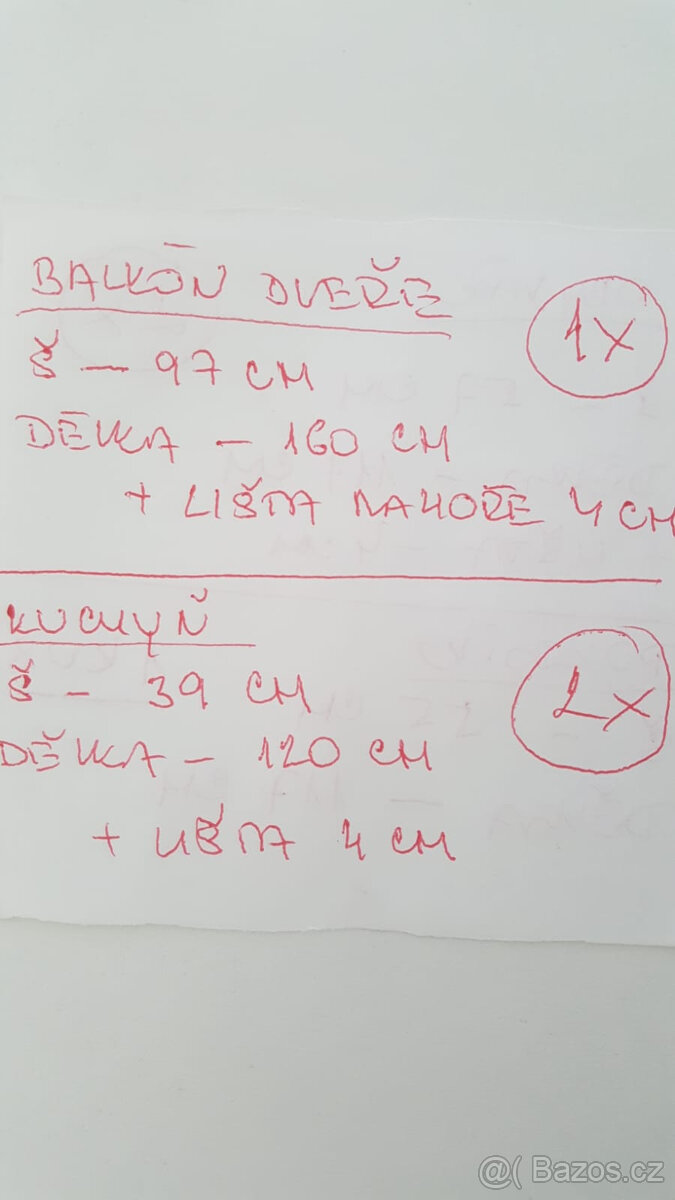 BALKŌN DVEŘE
1x
Š — 97 CM
DĒLKA — 160 CM
+ LIŠTA NAHOŘE 4 CM
KUCHYŇ
Š — 39 CM
2x
DĚLKA — 120 CM
+ LIŠTA 4 CM
@( Bazos.cz